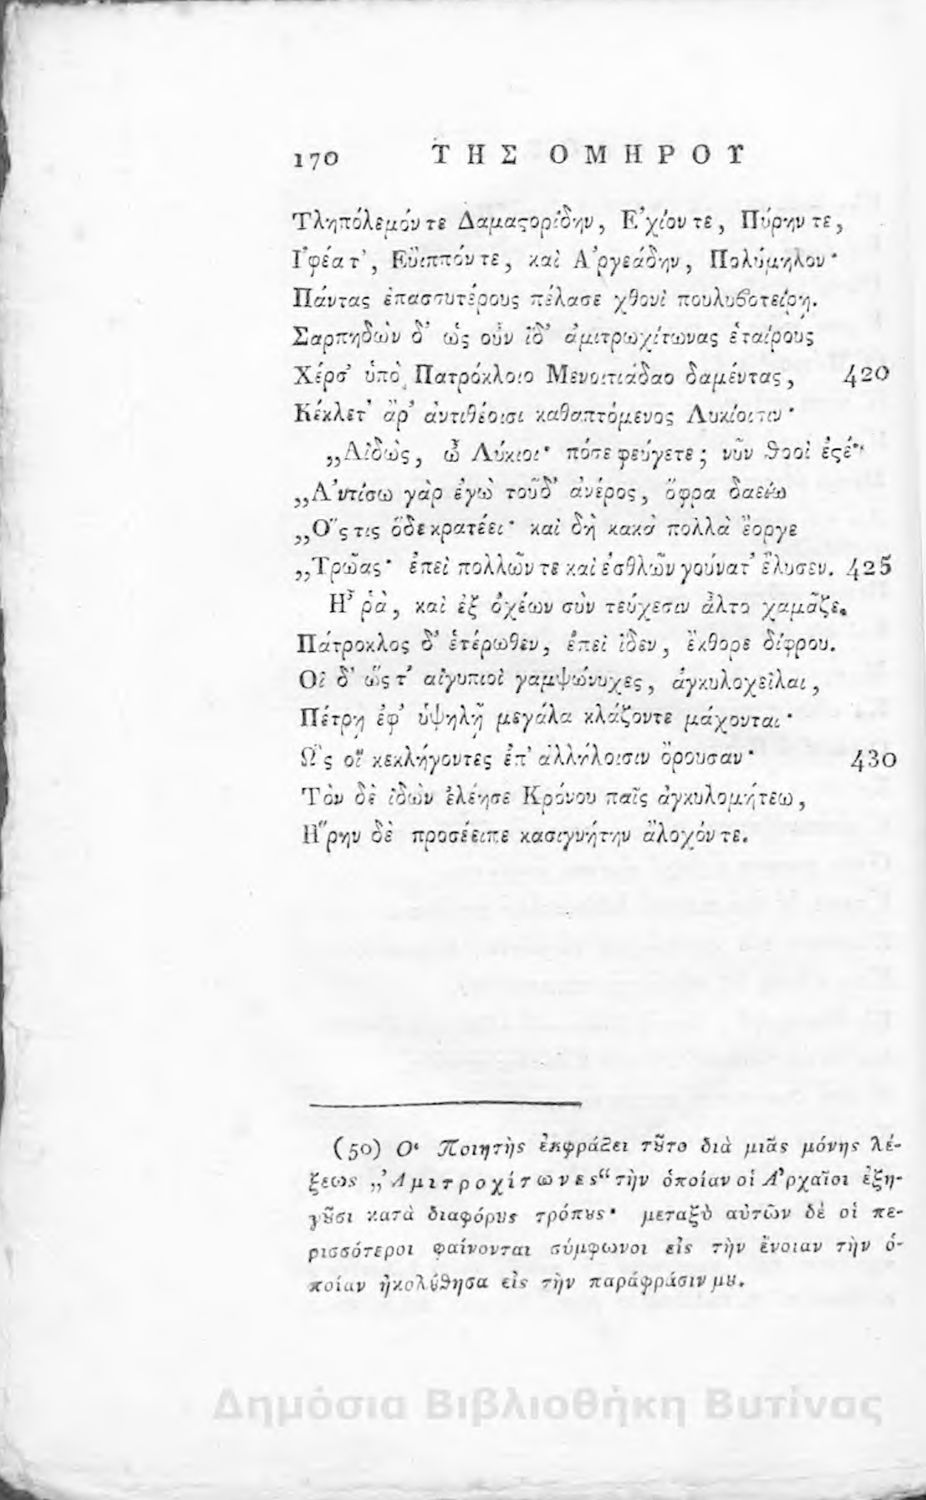 170 ΤΗΣ ΟΜΗΡΟΥ
Τληπόλεμόν τε Δαμαϛορίδην, Ε᾿χίον τε, Πύρην τε,
Ι᾿φέατ᾿, Εὔιππόν τε, καὶ Α᾿ργεάδην, Πολύμηλον·
Πάντας ἐπασσυτέρους πέλασε χθονὶ πουλυβοτείρῃ.
Σαρπηδὼν δ᾿ ὡς οὖν ἴδ᾿ ἀμιτρωχίτωνας ἑταίρους
Χέρσ᾿ ὑπὸ Πατρόκλοιο Μενοιτιάδαο δαμέντας, 420
Κέκλετ᾿ ἂρ᾿ ἀντιθέοισι καθαπτόμενος Λυκίοισιν·
„Αἰδὼς, ὦ Λύκιοι· πόσε φεύγετε; νῦν θοοὶ ἐϛέ·
„Α᾿ντίσω γὰρ ἐγὼ τοῦδ᾿ ἀνέρος, ὄφρα δαείω
„Ο῞ς τις ὅδε κρατέει· καὶ δὴ κακὰ πολλὰ ἔοργε
„Τρῶας· ἐπεὶ πολλῶν τε καὶ ἐσθλῶν γούνατ᾿ ἔλυσεν. 425
Η῏ ῥὰ, καὶ ἐξ ὀχέων σὺν τεύχεσιν ἆλτο χαμᾶζε.
Πάτροκλος δ᾿ ἑτέρωθεν, ἐπεὶ ἴδεν, ἔκθορε δίφρου.
Οἱ δ᾿ ὥς τ᾿ αἰγυπιοὶ γαμψώνυχες, ἀγκυλοχεῖλαι,
Πέτρῃ ἐφ᾿ ὑψηλῇ μεγάλα κλάζοντε μάχονται·
Ω῝ς οἳ κεκλήγοντες ἐπ᾿ ἀλλήλοισιν ὄρουσαν· 430
Τὸν δὲ ἰδὼν ἐλέησε Κρόνου παῖς ἀγκυλομήτεω,
Η῞ρην δὲ προσέειπε κασιγνήτην ἄλοχόν τε.
(50) Ο῾ Ποιητὴς ἐκφράζει τȣ͂το διὰ μιᾶς μόνης λέ-
ξεως „᾿Αμιτροχίτωνες“ τὴν ὁποίαν οἱ Α᾿ρχαῖοι ἐξη-
γȣ͂σι κατὰ διαφόρȣς τρόπȣς· μεταξὺ αὐτῶν δὲ οἱ πε-
ρισσότεροι φαίνονται σύμφωνοι εἰς τὴν ἔνοιαν τὴν ὁ-
ποίαν ἠκολȣ́θησα εἰς τὴν παράφρασιν μȣ.
Δημόσια Βιβλιοθήκη Βυτίνας